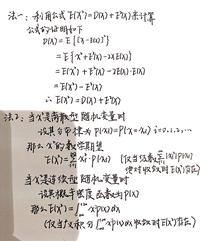 法一：利用公式 E(X²)=D(X)+E²(X)来计算
公式的证明如下
D(X)=E{[X-E(X)]²}
=E{X²+E²(X)-2XE(X)}
=E(X²)+E²(X)-2E(X)·E(X)
=E(X²)-E²(X)
∴ E(X²)=D(X)+E²(X)
法2：当X是离散型随机变量时
设其分布律为P(Xi)=P{X=Xi} i=0,1,2,…
那么X²的数学期望
E(X²)=∑Xi²·P(Xi) (仅当级数∑|Xi²|P(Xi)
绝对收敛时E(X²)存在)
当X是连续型随机变量时
设其概率密度函数为p(x)
那么E(X²)=∫x²p(x)dx
(仅当广义积分∫x²p(x)dx收敛时E(X²)存在)